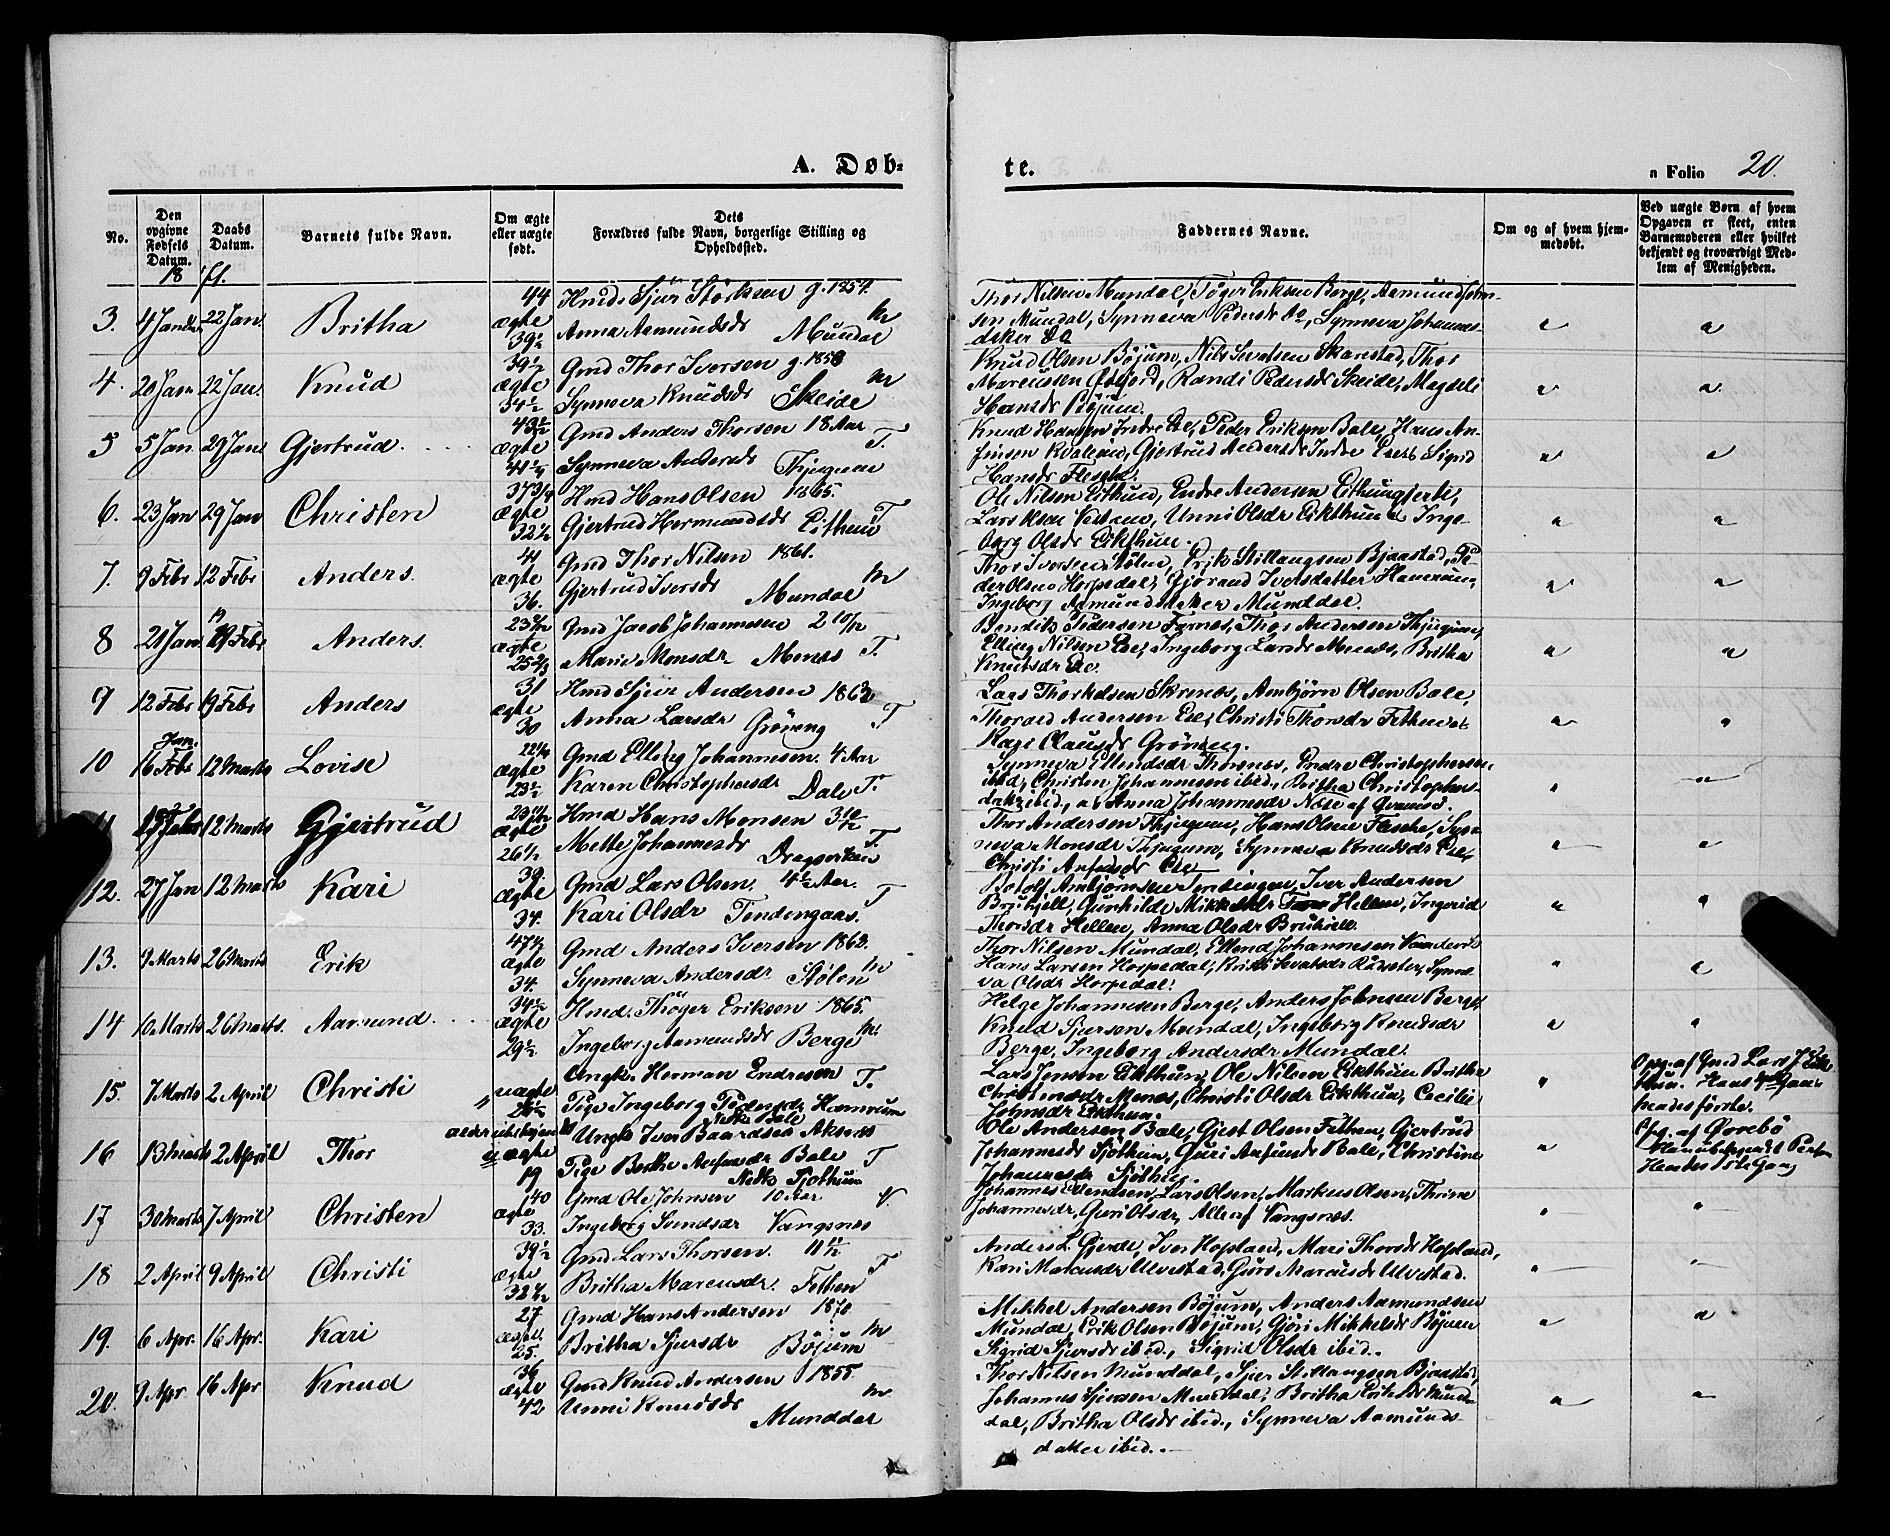 A. Døb-
te.
n Folio 20.
No.
Den opgivne Fødsels Datum.
Daabs Datum.
Barnets fulde Navn.
Om ægte eller uægte født.
Dets Forældres fulde Navn, borgerlige Stilling og Opholdssted.
Faddernes Navne.
Om og af hvem hjemmedøbt.
Ved uægte Børn af hvem Opgaven er skeet, enten Barnemoderen eller hvilket bekjendt og troværdigt Medlem af Menigheden.
18 71.
3. 4 Januar 22 Jan. Britha 44 ægte 39½
Hmd. Sjur Størksen g. 1854.
Anna Aamundsdr Mundal M
Thor Nilsen Mundal, Tøger Eriksen Berge, Aamund John-
sen Mundal, Synneva Pedersdr Do, Synneva Johannes-
datter Do
4. 20 Jan 22 Jan. Knud 39½ ægte 34½
Gmd Thor Iversen g. 1858
Synneva Knudsdr Skeide M
Knud Olsen Bøjum, Nils Sevatsen Skarestad, Thor
Marcussen Østfjord, Randi Pedersdr Skeide, Magdeli
Hansdr Bøjum.
5 5 Jan 29 Jan Gjertrud 43½ ægte 41½
Gmd Anders Thorsen 18 Aar
Synneva Andersdr Thjugum T.
Knud Hansen Indre Ese, Peder Eriksen Bale, Hans An-
finsen Kvalevig, Gjertrud Andersdr Indre Ese, Sigrid
Hansdr Flesche.
6. 23 Jan 29 Jan Christen 37 3/4 ægte 32½
Hmd Hans Olsen 1865.
Gjertrud Hermundsdr Eithun T.
Ole Nilsen Eithun, Endre Andersen Eithungjerde,
Lars Olsen Vestrem, Unni Olsdr Eikthun & Inge-
borg Olsdr Eikthun.
7. 9 Febr 12 Febr Anders. 41 ægte 36.
Gmd Thor Nilsen 1861.
Gjertrud Iversdr Mundal M
Thor Iversen Stølen, Erik Stillaugsen Bjaastad, Pe-
der Olsen Horpedal, Gjørand Iversdatter Hamrum,
Ingeborg Aamundsdatter Munddal.
8 21 Jan 19 Febr Anders.
Gmd Jacob Johannesen 2 10/12
Marie Monsdr Menes T.
Bendik Pedersen Farnes, Thor Andersen Thjugum,
Elling Nilsen Ese, Ingeborg Larsdr Menes, Britha
Knutsdr Ese.
9 12 Febr 19 Febr Anders 31 ægte 30
Hmd Sjur Andersen 1863
Anna Larsdr Grøneng T
Lars Thorkelsen Skrenes, Ambjørn Olsen Bale,
Thorald Andersen Ese, Christi Thorsdr Fethun &
Kari Clausdr Grøneng.
10 16 Jan. 12 Marts Lovise ægte 23½
Gmd Elling Johannesen. 4 Aar
Karen Christophersdr Dale T.
Synneva Ellendsdr Thorsnes, Endre Christophersen
ibid, Christen Johannesen ibid, Britha Christophers-
datter ibid, & Anna Johannesdr Nese af Qvamsø.
11 12 Marts Gjertrud ægte 26½
Hmd Hans Monsen
Mette Johannesdr Dragsviken T.
Thor Andersen Thjugum, Hans Olsen Flesche, Syn-
neva Monsdr Thjugum, Synneva Knudsdr Ese,
Christi Anfinsdr Ese
12. 27 Jan 12 Marts Kari 39. ægte 34.
Gmd Lars Olsen. 4½ Aar.
Kari Olsdr Tendengaas. T
Botolf Ambjørnsen Tendingen, Iver Andersen
Bruhjell, Gunhilde Mikkelsdr Hellen, Ingerid
Thorsdr Hellen, Anna Olsdr Bruhjell.
13. 9 Marts 26 Marts Erik 47½ ægte 34.
Gmd Anders Iversen 1862.
Synneva Andersdr Stølen M
Thor Nilsen Mundal, Ellend Johannesen
Hans Larsen Horpedal, Kristi Sevatsdr Rødseter, Synne-
va Olsdr Horpedal.
14 10 Marts 26 Marts. Aamund. 34½ ægte 29½
Hmd. Thøger Eriksen 1865.
Ingeborg Aamundsdr Berge M.
Helge Johannesen Berge, Anders Johnsen Berge
Knud Sjursen Mundal, Ingeborg Knudsdr
Berge, Ingeborg Andersdr Mundal.
15. 7 Marts 2 April Christi uægte
Ungk. Herman Endresen T.
Pige Ingeborg Pedersdr Hamrum
Nedre Bale
Lars Jensen Eikthun, Ole Nilsen Eikthun Britha
Christensdr Menes, Christi Olsdr Eikthun, Cecilie
Johnsdr Eikthun.
Opg. af Gmd Lars J Eik-
thun. Hans Gang
hendes første.
16 13 Marts 2 April Thor uægte 19
Ungk Iver Baardsen Aksnes
Pige Berthe Anfinsdr Bale T
Nedre Tjøthun
Ole Andersen Bale, Gjest Olsen Fethun, Gjertrud
Johannesdr Sjøthun, Guri Anfinsdr Bale, Christine
Johannesdr Sjøthun.
Opg. af Ørrebø
Han ubekjendt Person
Hendes 1ste Gang
17 30 Marts 7 April Christen 40 ægte 33.
Gmd Ole Johnsen 10 Aar V.
Ingeborg Svendsdr Vangsnes
Johannes Svendsen, Lars Olsen, Markus Olsen, Thrine
Johannesdr, Guri Olsdr, Alle af Vangsnes.
18 2 April 9 April Christi 39½ ægte
Gmd. Lars Thorsen. 11½
Britha Marcusdr. Fethun T
Anders L. Gjerde, Iver Hofsland, Mari Thorsdr Hofsland,
Kari Marcusdr Ulvestad, Guro Marcusdr Ulvestad.
19. 6 Apr. 16 Apr. Kari 27 ægte. 25.
Gmd Hans Andersen 1870
Britha Sjursdr Bøjum M
Mikkel Andersen Bøjum, Anders Aamundsen
Mundal, Erik Olsen Bøjum, Gjøri Mikkelsdr Bøjum
Sigrid Sjursdr ibid., Sigrid Olsdr ibid.
20. 9 Apr 16 Apr Knud 36 ægte 42
Gmd Knud Andersen 1855.
Unni Knudsdr Munddal M
Thor Nilsen Munddal, Sjur Stillaugsen Bjaastad,
Johannes Sjursen Munddal, Britha Eriksdr Mund-
dal, Britha Olsdr ibid., Synneva Aamunds-
datter ibid.